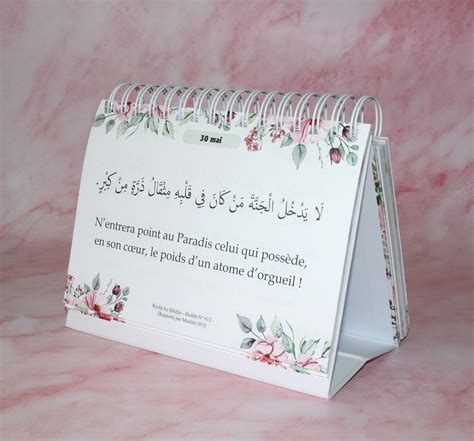 30 mai
لَا يَدْخُلُ الْجَنَّةَ مَنْ كَانَ فِي قَلْبِهِ مِثْقَالُ ذَرَّةٍ مِنْ كِبْرٍ.
N'entrera point au Paradis celui qui possède,
en son cœur, le poids d'un atome d'orgueil !
Riyâd As-Sâlihîn - Hadith N° 612 -
[Rapporté par Muslim (91)]